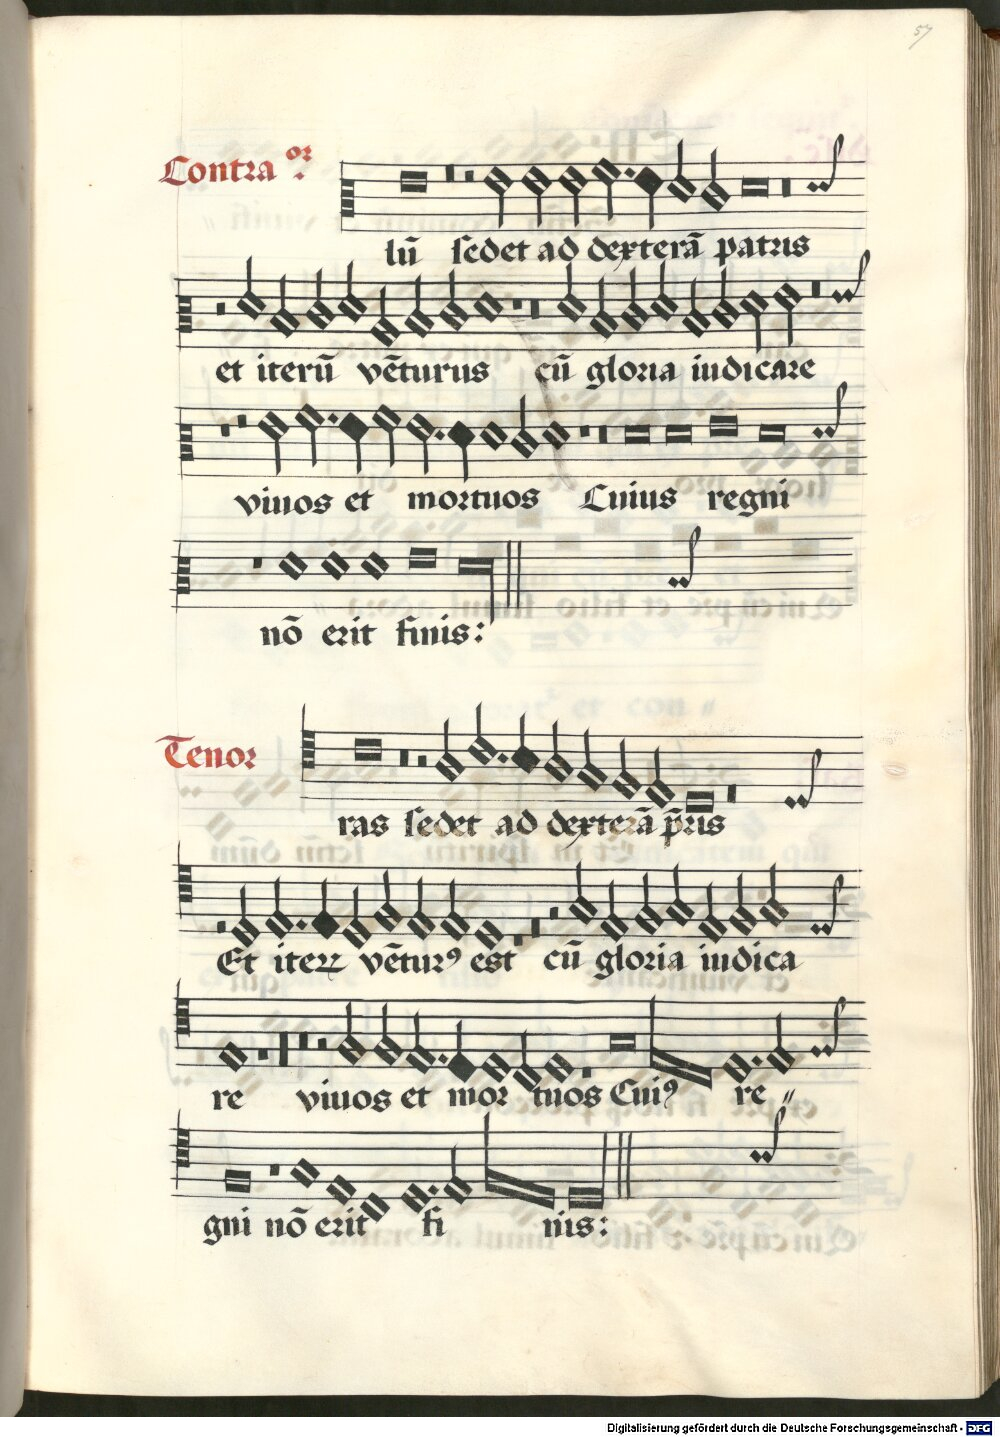 57
Contra or
lū sedet ad dexterā patris
et iterū vēturus cū gloria iudicare
viuos et mortuos Cuius regni
nō erit finis:
Tenor
ras sedet ad dexterā p̄ris
Et iterꝝ vēturꝰ est cū gloria iudica
re viuos et mor tuos Cuiꝰ re〃
gni nō erit fi nis:
Digitalisierung gefördert durch die Deutsche Forschungsgemeinschaft - DFG